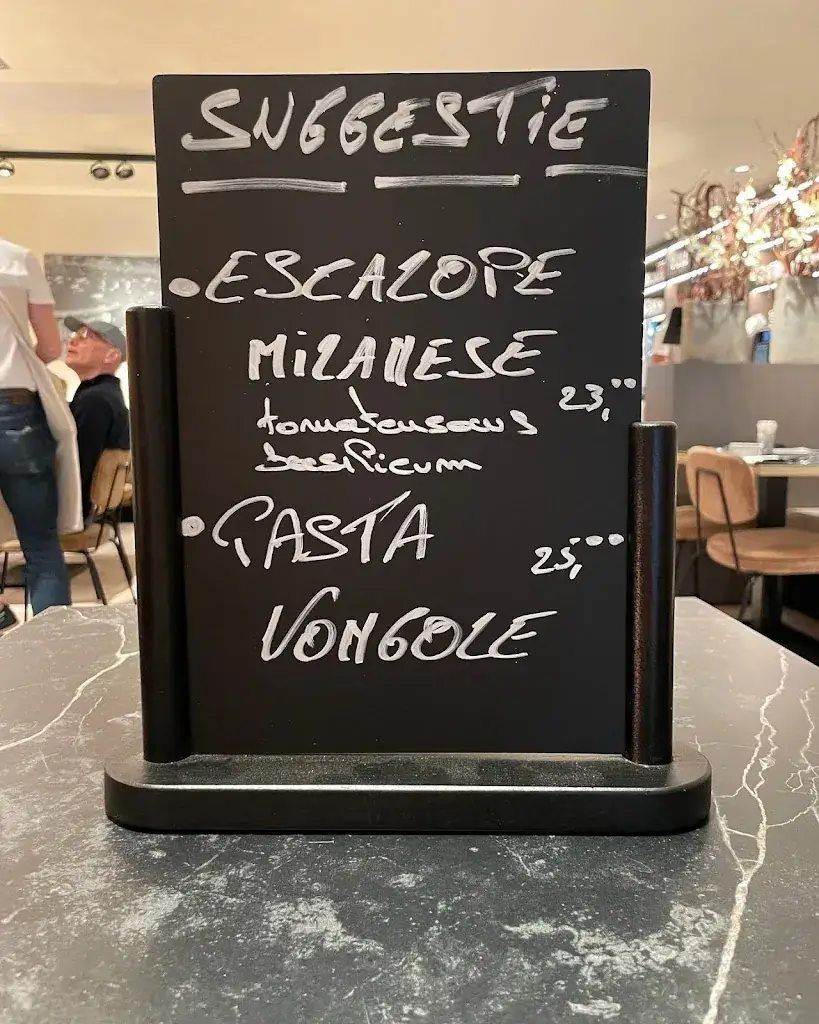 SUGGESTiE
• ESCALOPE
MiLANESE
23,°°
tomatensaus
basilicum
• PASTA
25,°°
VONGOLE